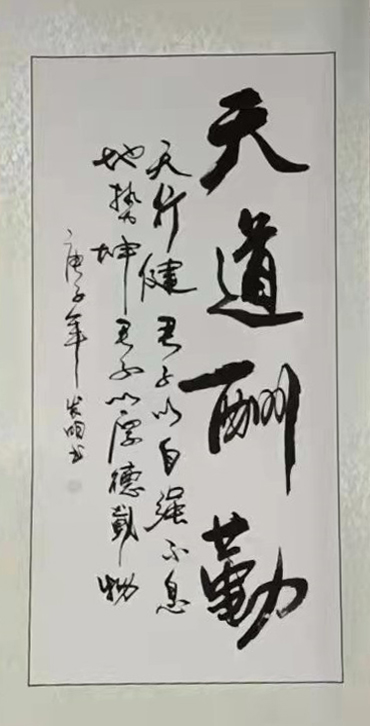 天道酬勤
天行健君子以自强不息
地势坤君子以厚德载物
庚子年 发明书